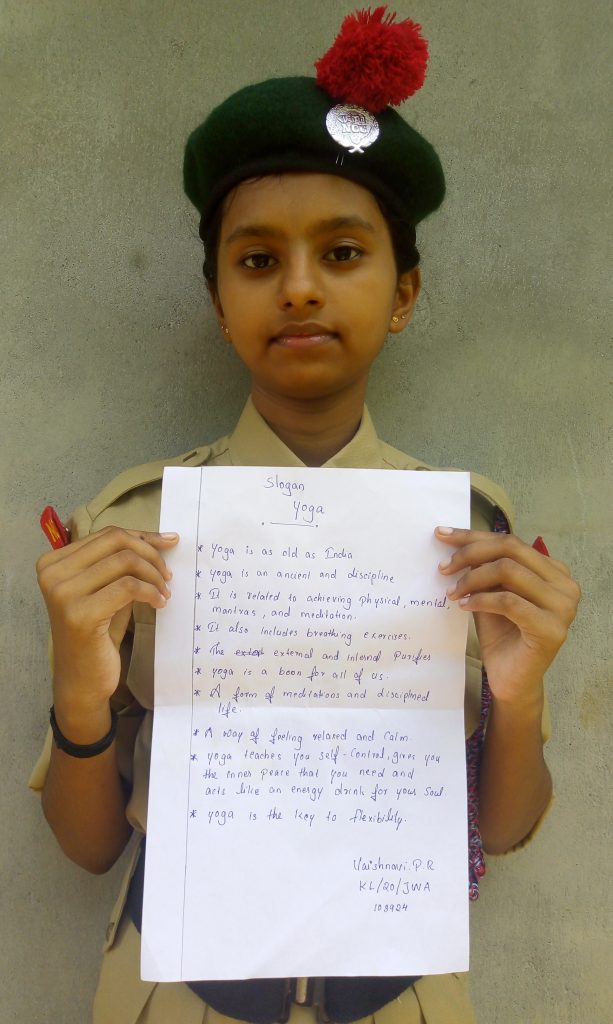 NCC
Slogan
Yoga
* Yoga is as old as India
* yoga is an ancient and discipline
* It is related to achieving physical, mental,
mantras, and meditation.
* It also includes breathing exercises.
* The external and internal Purifies
* yoga is a boon for all of us.
* A form of meditations and disciplined
life.
* A way of feeling relaxed and calm.
* yoga teaches you self-control, gives you
the inner peace that you need and
acts like an energy drink for your soul.
* yoga is the key to flexibility.
Vaishnavi.P.R
KL/20/JWA
108924